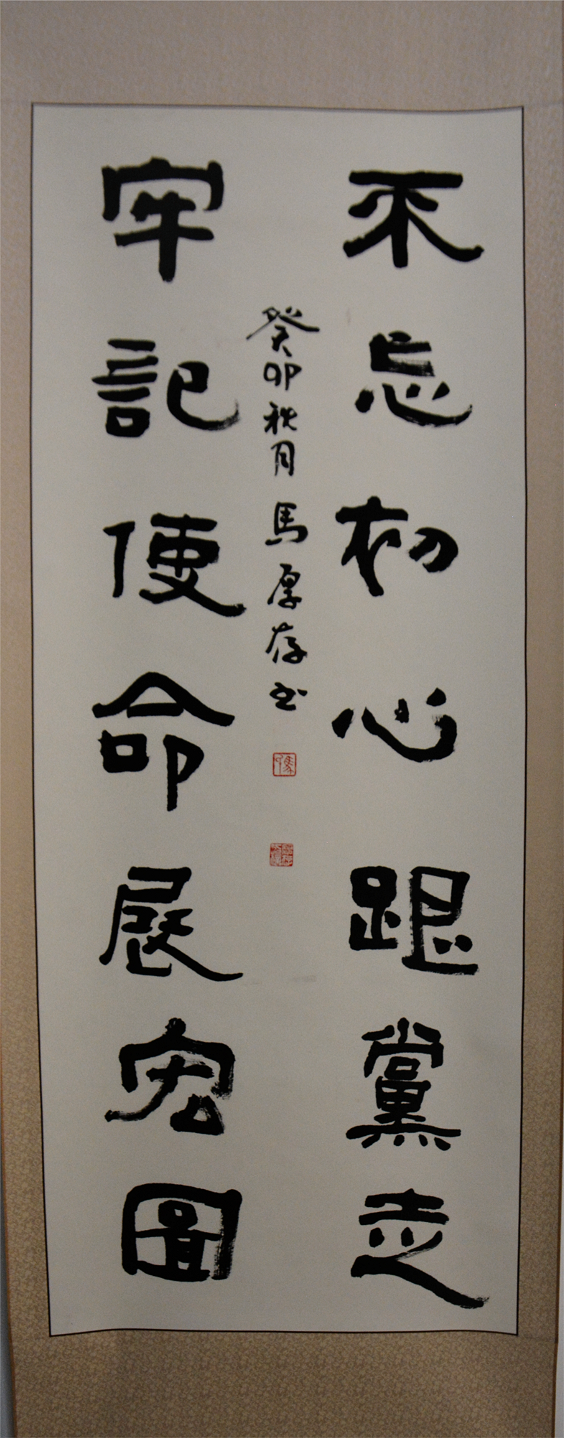 不忘初心跟黨走
牢記使命展宏圖
癸卯秋月馬厚存书